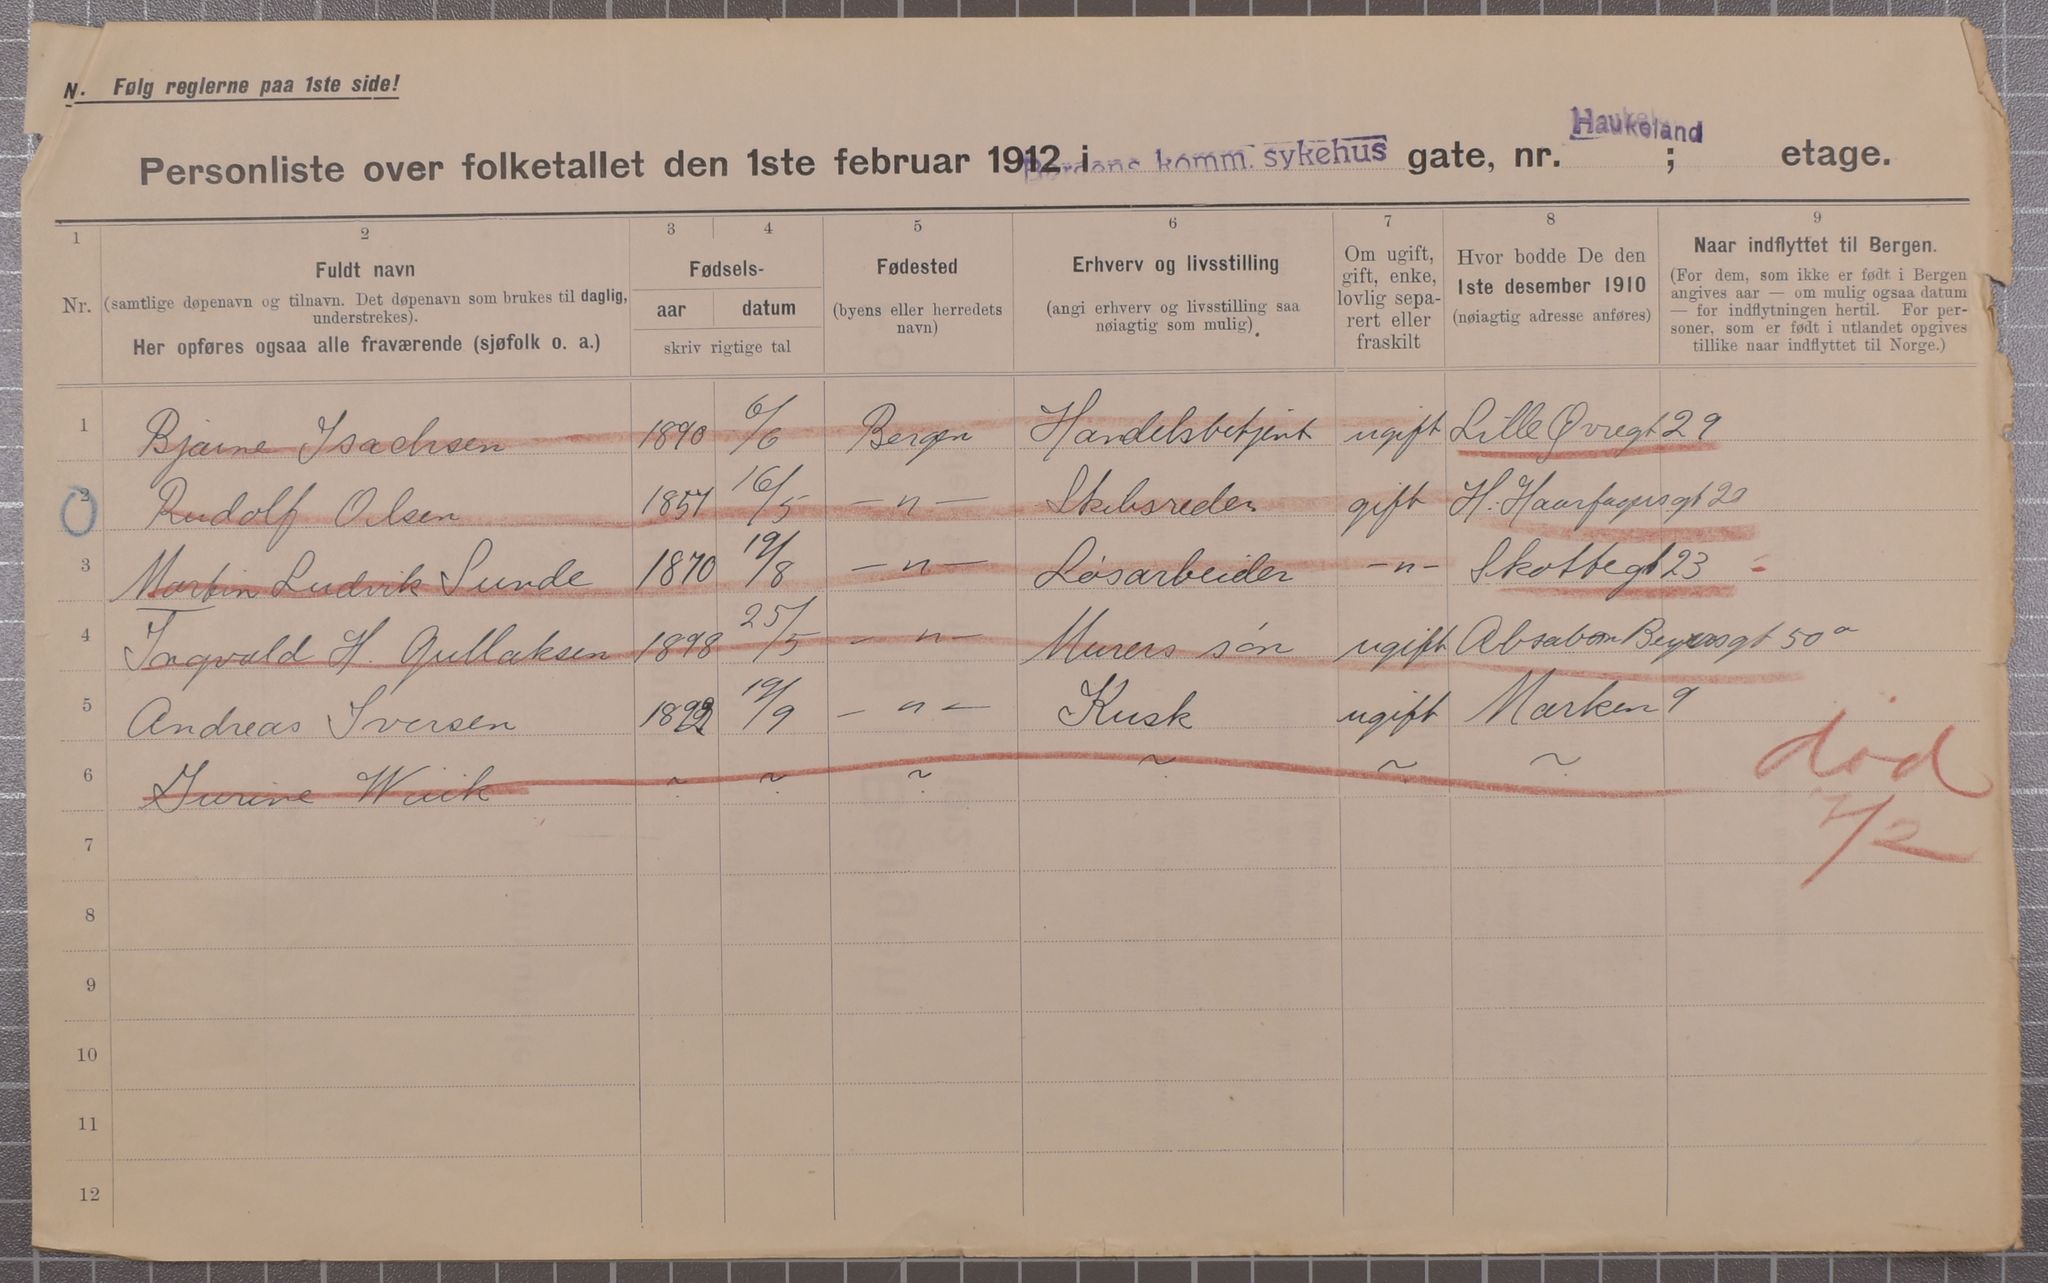 N. Følg reglerne paa 1ste side!
Haukeland
Personliste over folketallet den 1ste februar 1912 i Bergens komm. sykehus gate, nr. ; etage.
1 2 3 4 5 6 7 8 9
Nr.
Fuldt navn
(samtlige døpenavn og tilnavn. Det døpenavn som brukes til daglig, understrekes).
Her opføres ogsaa alle fraværende (sjøfolk o. a.)
Fødsels-
aar datum
skriv rigtige tal
Fødested
(byens eller herredets
navn)
Erhverv og livsstilling
(angi erhverv og livsstilling saa
nøiagtig som mulig).
Om ugift,
gift, enke,
lovlig sepa-
rert eller
fraskilt
Hvor bodde De den
1ste desember 1910
(nøiagtig adresse anføres)
Naar indflyttet til Bergen.
(For dem, som ikke er født i Bergen
angives aar — om mulig ogsaa datum
— for indflytningen hertil. For per-
soner, som er født i utlandet opgives
tillike naar indflyttet til Norge.)
1 Bjarne Isachsen 1890 6/6 Bergen Handelsbetjent ugift Lille Øvregt 29
2 Rudolf Olsen 16/5 — " — Skibsreder gift H. Haarfagersgt 20
3 Martin Ludvik Sunde 1870 19/8 — " — Løsarbeider — " — Skottegt 23
4 Ingvald H. Gullaksen 1898 25/5 — " — Murers søn ugift Absalon Beyersgt 50 a
5 Andreas Iversen 19/9 — " — Kusk ugift Marken 9
6 Wiik ~ ~ ~ ~ ~ ~
død
2/2
7
8
9
10
11
12